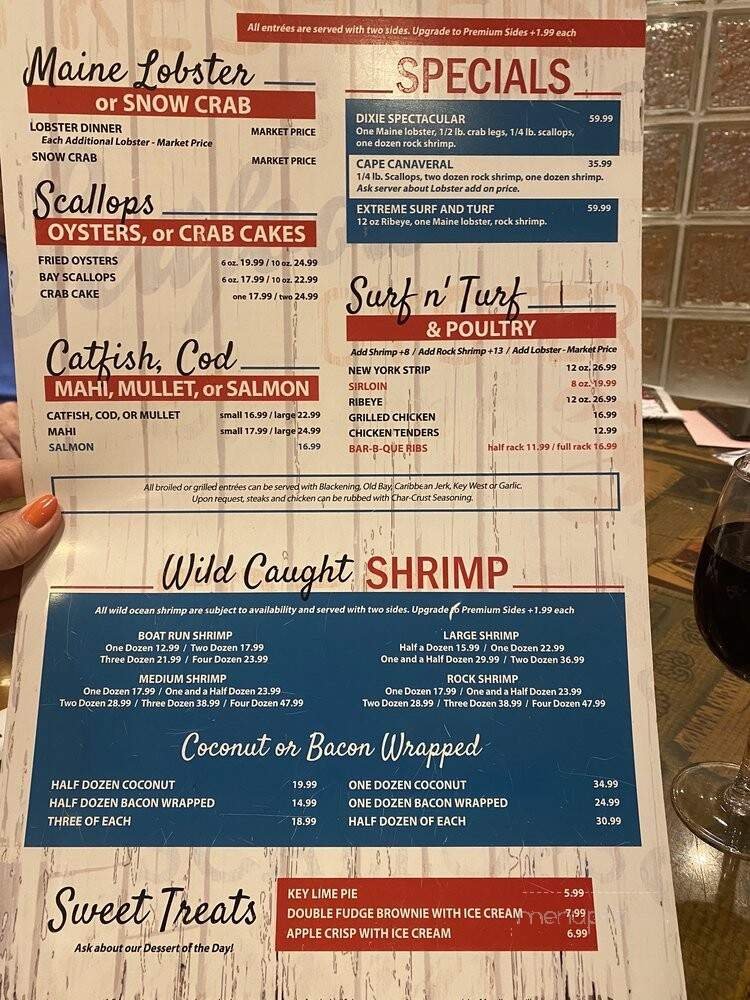 All entrées are served with two sides. Upgrade to Premium Sides +1.99 each
Maine Lobster
or SNOW CRAB
LOBSTER DINNER MARKET PRICE
Each Additional Lobster - Market Price
SNOW CRAB MARKET PRICE
Scallops
OYSTERS, or CRAB CAKES
FRIED OYSTERS 6 oz. 19.99 / 10 oz. 24.99
BAY SCALLOPS 6 oz. 17.99 / 10 oz. 22.99
CRAB CAKE one 17.99 / two 24.99
Catfish, Cod
MAHI, MULLET, or SALMON
CATFISH, COD, OR MULLET small 16.99 / large 22.99
MAHI small 17.99 / large 24.99
SALMON 16.99
SPECIALS
DIXIE SPECTACULAR 59.99
One Maine lobster, 1/2 lb. crab legs, 1/4 lb. scallops,
one dozen rock shrimp.
CAPE CANAVERAL 35.99
1/4 lb. Scallops, two dozen rock shrimp, one dozen shrimp.
Ask server about Lobster add on price.
EXTREME SURF AND TURF 59.99
12 oz Ribeye, one Maine lobster, rock shrimp.
Surf n' Turf
& POULTRY
Add Shrimp +8 / Add Rock Shrimp +13 / Add Lobster - Market Price
NEW YORK STRIP 12 oz. 26.99
SIRLOIN 8 oz. 19.99
RIBEYE 12 oz. 26.99
GRILLED CHICKEN 16.99
CHICKEN TENDERS 12.99
BAR-B-QUE RIBS half rack 11.99 / full rack 16.99
All broiled or grilled entrées can be served with Blackening, Old Bay, Caribbean Jerk, Key West or Garlic.
Upon request, steaks and chicken can be rubbed with Char-Crust Seasoning.
Wild Caught SHRIMP
All wild ocean shrimp are subject to availability and served with two sides. Upgrade to Premium Sides +1.99 each
BOAT RUN SHRIMP
One Dozen 12.99 / Two Dozen 17.99
Three Dozen 21.99 / Four Dozen 23.99
MEDIUM SHRIMP
One Dozen 17.99 / One and a Half Dozen 23.99
Two Dozen 28.99 / Three Dozen 38.99 / Four Dozen 47.99
LARGE SHRIMP
Half a Dozen 15.99 / One Dozen 22.99
One and a Half Dozen 29.99 / Two Dozen 36.99
ROCK SHRIMP
One Dozen 17.99 / One and a Half Dozen 23.99
Two Dozen 28.99 / Three Dozen 38.99 / Four Dozen 47.99
Coconut or Bacon Wrapped
HALF DOZEN COCONUT 19.99
HALF DOZEN BACON WRAPPED 14.99
THREE OF EACH 18.99
ONE DOZEN COCONUT 34.99
ONE DOZEN BACON WRAPPED 24.99
HALF DOZEN OF EACH 30.99
Sweet Treats
Ask about our Dessert of the Day!
KEY LIME PIE 5.99
DOUBLE FUDGE BROWNIE WITH ICE CREAM 7.99
APPLE CRISP WITH ICE CREAM 6.99